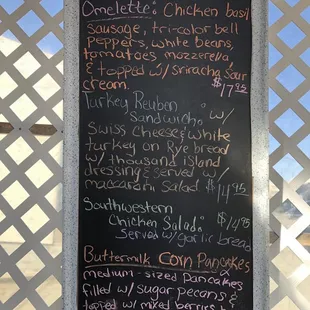 Omelette: Chicken basil
sausage, tri-color bell
peppers, white beans,
tomatoes mozzerella
& topped w/ sriracha sour
cream. $17.95
Turkey Reuben
Sandwich: w/
Swiss cheese & white
turkey on Rye bread
w/ thousand island
dressing & served w/
maccaroni salad $14.95
Southwestern
Chicken Salad: $14.95
Served w/ garlic bread
Buttermilk Corn Pancakes
medium-sized pancakes
filled w/ sugar pecans &
topped w/ mixed berries